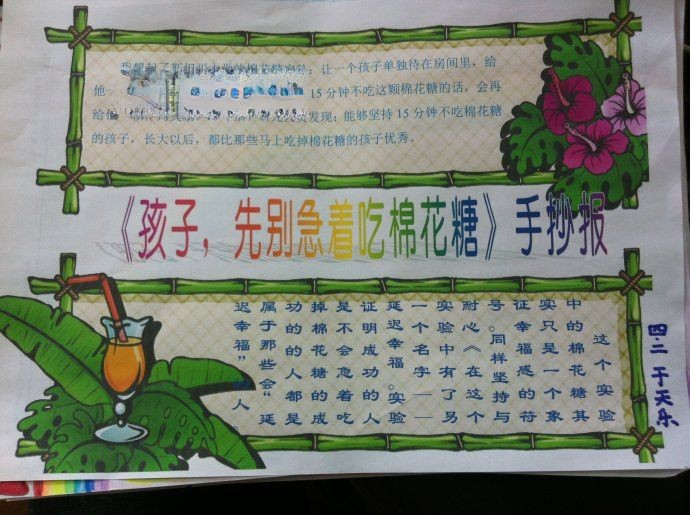 我想起了：让一个孩子单独待在房间里，给
他 15分钟不吃这颗棉花糖的话，会再
给他 发现：能够坚持15分钟不吃棉花糖
的孩子，长大以后，都比那些马上吃掉棉花糖的孩子优秀。
《孩子，先别急着吃棉花糖》手抄报
这个实验
中的棉花糖其
实只是一个象
征幸福感的符
号。同样坚持与
耐心《在这个
实验中有了另
一个名字——
延迟幸福。实验
证明成功的人
是不会急着吃
掉棉花糖的成
功的的人都是
属于那些会“延
迟幸福”的人。
四.二 于天乐